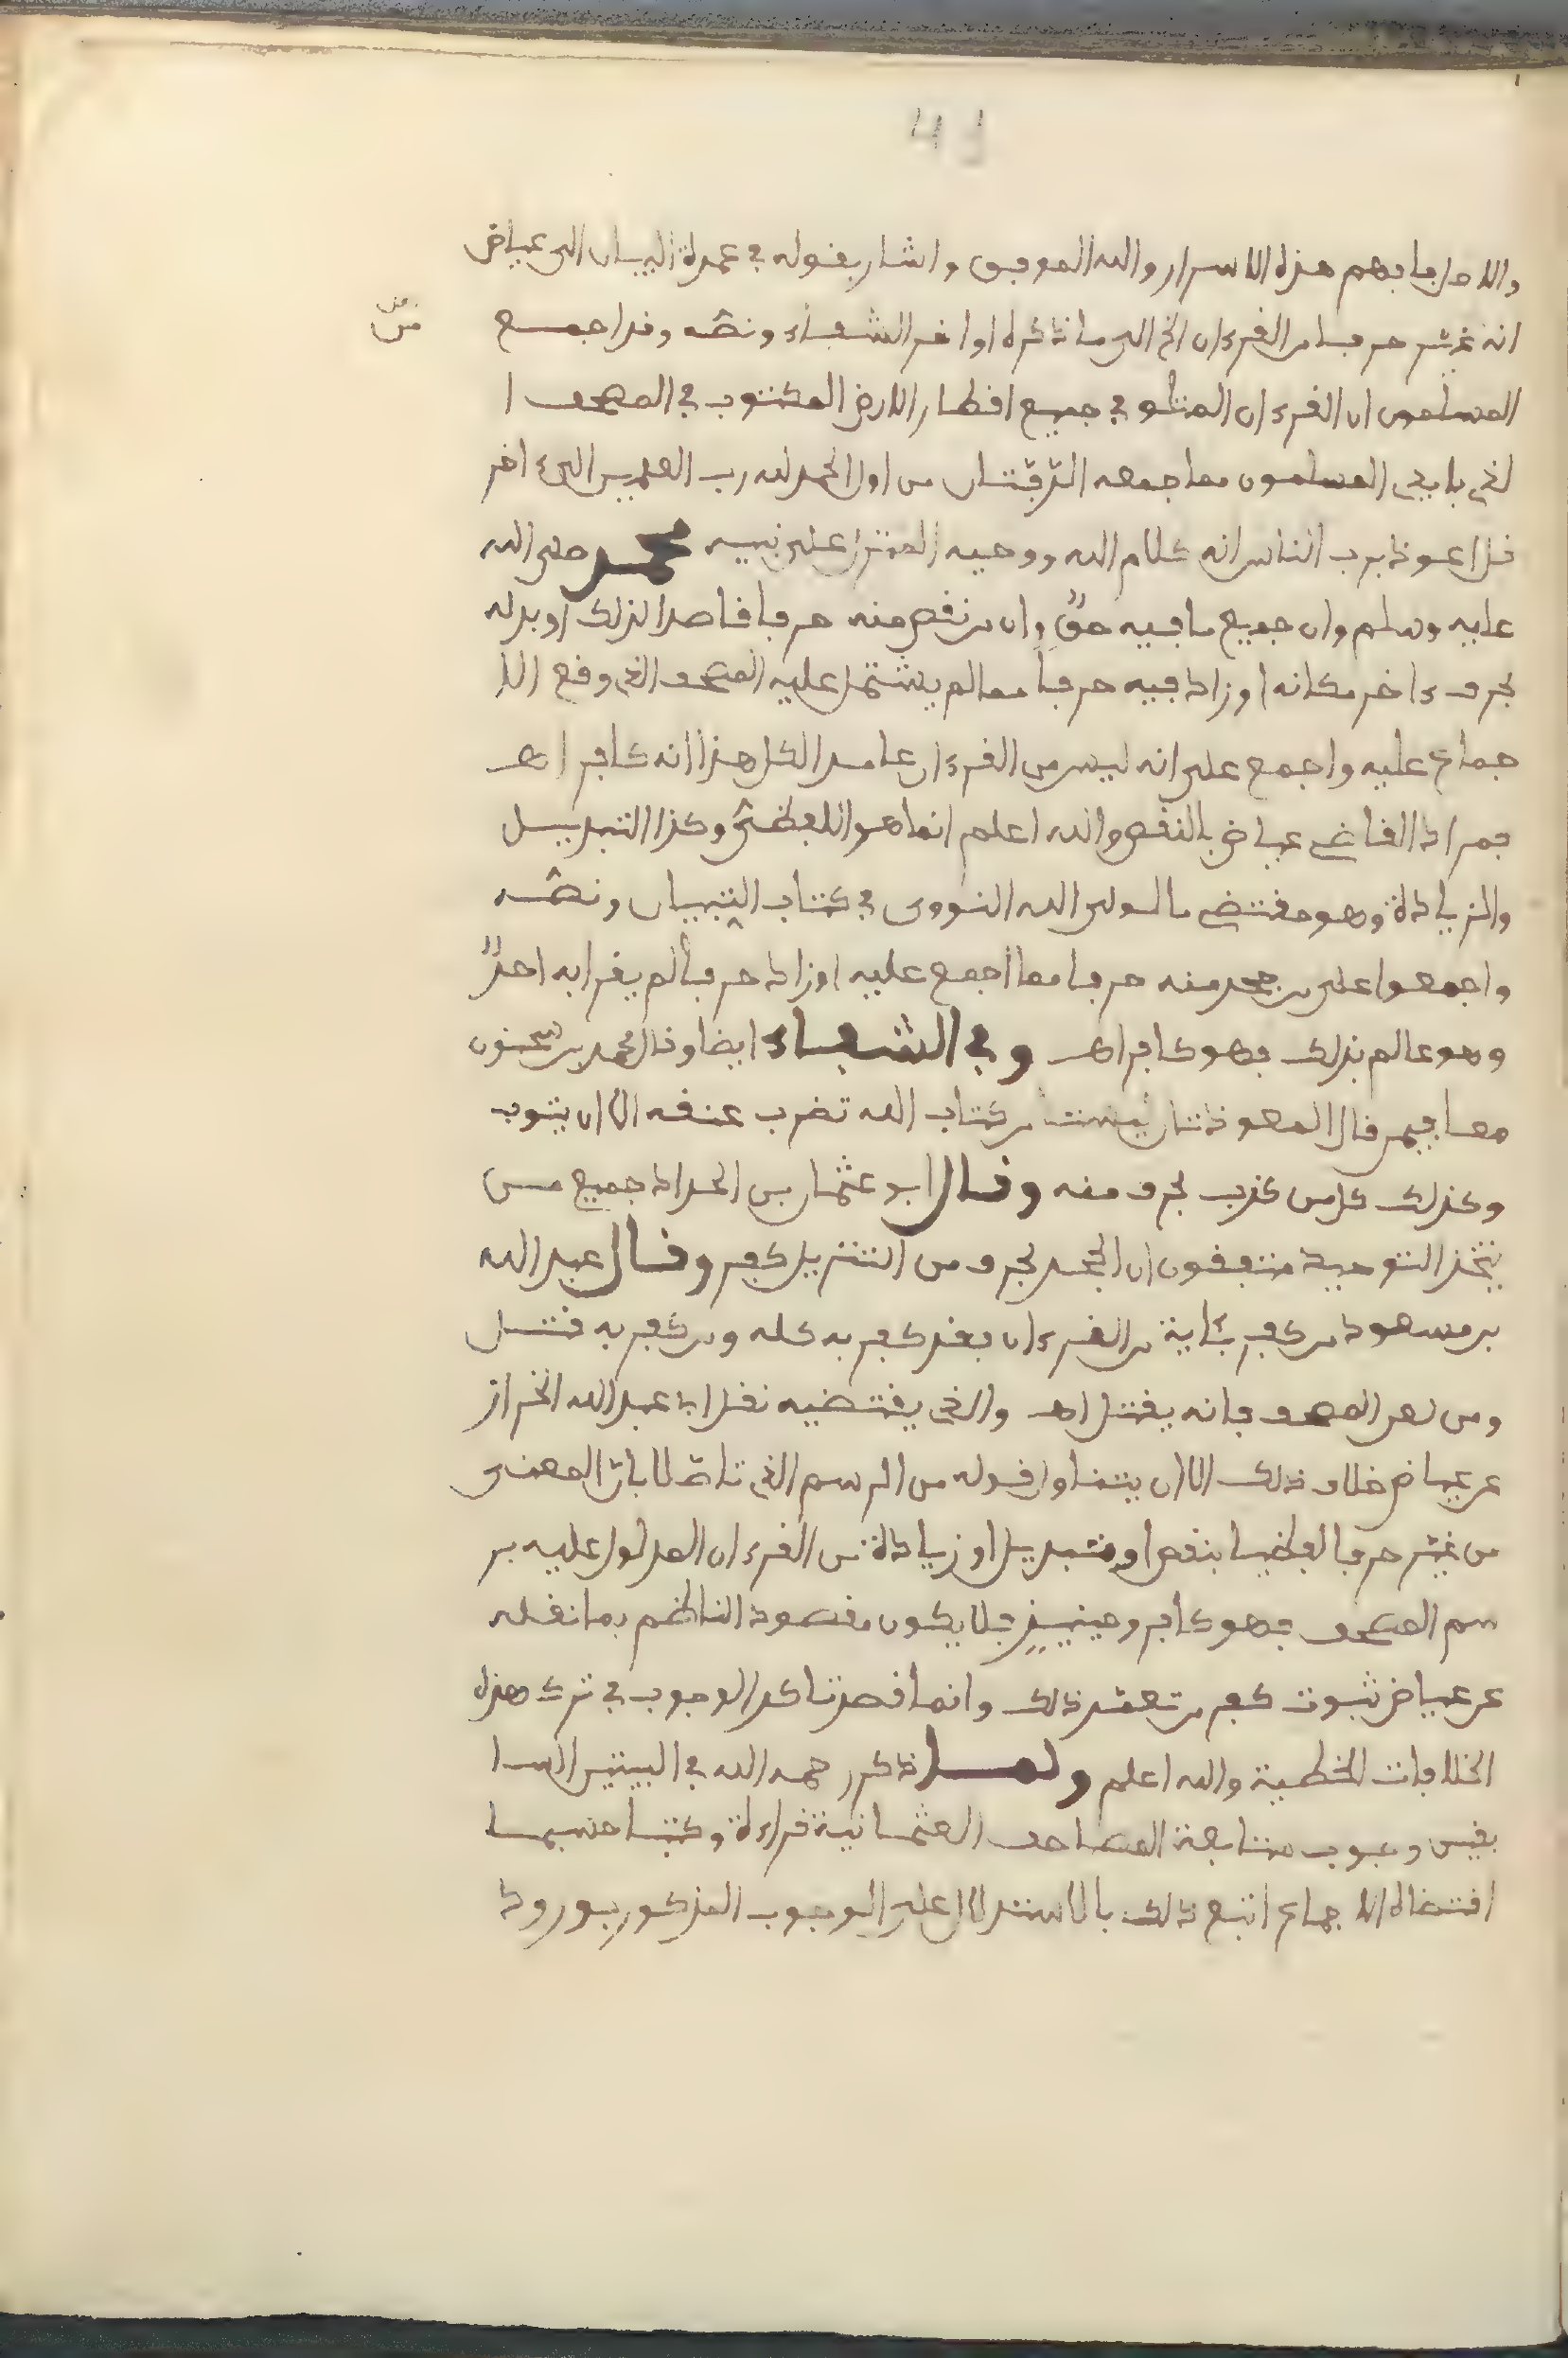 41
والاحرفا بهم هذه الاسرار والله الموفق واشار بقوله في عمدة البيان الى عياض
انه غيّر حرفا من القرءان الخ الى ما ذكره اواخر الشفاء ونصّه وقد اجمع
من
المسلمون ان القرءان المتلو في جميع اقطار الارض المكتوب في المصحف ا
لذي بايدي المسلمون مما جمعه الدّفّتان من اول الحمد لله رب العلمين الى ءاخر
قل اعوذ برب الناس انه كلام الله ووحيه المنزل على نبيه محمد صلى الله
عليه وسلم وان جميع ما فيه حقٌّ وان من نقص منه حرفا قاصدا لذلك او بدله
بحرف ءاخر مكانه او زاد فيه حرفا مما لم يشتمل عليه المصحف الذي وقع الا
جماع عليه واجمع على انه ليس من القرءان عامدا لكل هذا انه كافر اهـ
فمراد القاضي عياض بالنقص والله اعلم انما هو اللفظيّ وكذا التبديل
والزيادة وهو مقتضى ما لولى الله النووي في كتاب التبيان ونصّه
واجمعوا على من جحد منه حرفا مما اجمع عليه او زاد حرفا لم يقرا به احدٌ
وهو عالم بذلك فهو كافر اهـ وفي الشفاء ايضا وقال محمد بن سحنون
معا فيمن قال المعوذتان ليست من كتاب الله تضرب عنقه الا ان يتوب
وكذلك كل من كذب بحرف منه وقال ابو عثمان بن الحداد جميع من
ينتحل التوحيد متفقون ان الجحد لحرف من التنزيل كفر وقال عبد الله
بن مسعود من كفر بئاية من القرءان فقد كفر به كله ومن كفر به قتل
ومن لعن المصحف فانه يقتل اهـ والذي يقتضيه نقل ابا عبد الله الخراز
عن عياض خلاف ذلك الا ان يتناول قوله من الرسم الذي تاصّلا بان المعنى
من غيّر حرفا لفظيا بنقص او بتبديل او زيادة من القرءان المدلول عليه بر
سم المصحف فهو كافر وحينيذٍ فلا يكون مقصود الناظم بما نقله
عن عياض ثبوت كفر من تعمّد ذلك وانما قصد تاكد الوجوب في ترك هذه
الخلافات الخطية والله اعلم ولما ذكر رحمه الله في البيتين السا
بقين وجوب متابعة المصاحف العثمانية قراءة وكتبا حسبما
اقتضاه الاجماع اتبع ذلك بالاستدلال على الوجوب المذكور بورود